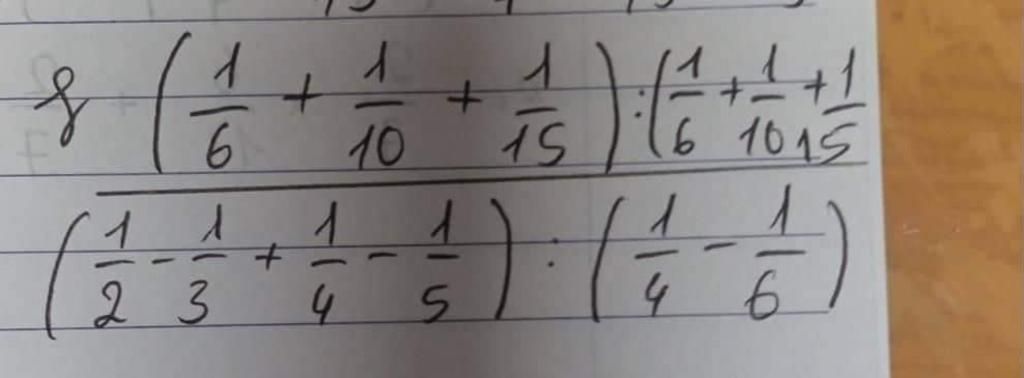 g (1/6 + 1/10 + 1/15) : (1/6 + 1/10 + 1/15
(1/2 - 1/3 + 1/4 - 1/5) : (1/4 - 1/6)